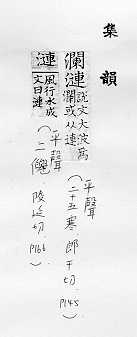 集韻
瀾漣
說文大波為
瀾或从連
(平聲
二十五寒 郎干切 P145)
漣
風行水成
文曰漣
(平聲
二僊 陵延切 P166)